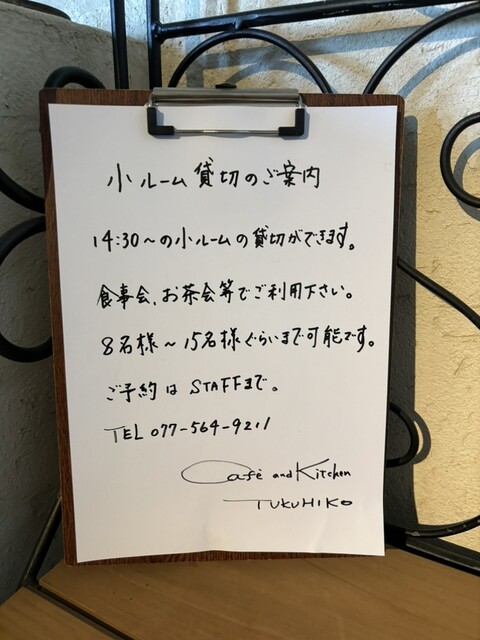 小ルーム貸切のご案内
14:30〜の小ルームの貸切ができます。
食事会、お茶会等でご利用下さい。
8名様〜15名様ぐらいまで可能です。
ご予約はSTAFFまで。
TEL 077-564-9211
Cafè and Kitchen
TUKUHIKO